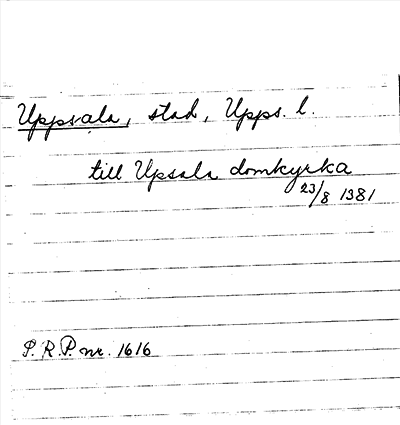 Uppsala, stad, Upps. l.
till Upsala domkyrka
23/8 1381
S. R. P. nr. 1616